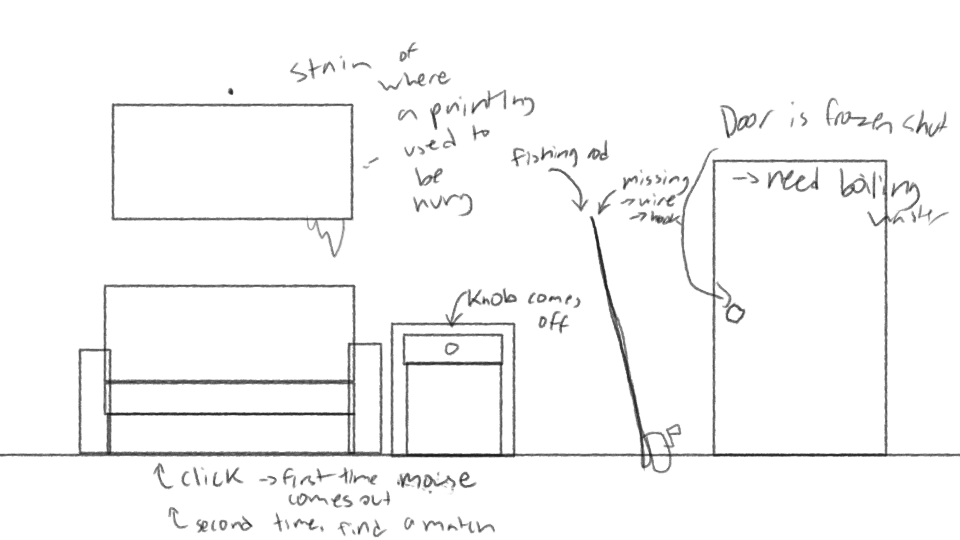 Stain of
where
a painting
used to
be
hung
fishing rod
missing
→ wire
→ hook
Door is frozen shut
→ need boiling
water
Knob comes
off
click → first time moise
comes out
second time, find a match